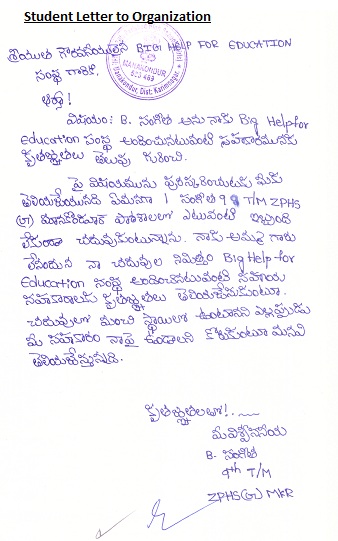 Student Letter to Organization
శ్రీయుత గౌరవనీయులైన BIG HELP FOR EDUCATION
సంస్థ గారికి,
MANAKONDUR
505 469
Manakondur, Dist: Karimnagar
ఆర్యా!
విషయం: B. సంగీత అను నాకు Big Help for
Education సంస్థ అందించినటువంటి సహకారమునకు
కృతజ్ఞతలు తెలుపు గురించి.
పై విషయమును పురస్కరించుకు మీకు
తెలియజేయునది ఏమనగా సంగీత 9 T/M ZPHS
పాఠశాలలో ఎటువంటి ఇబ్బంది
లేకుండా చదువుకుంటున్నాను. నాకు అమ్మ గారు
లేనందున నా చదువుల నిమిత్తం Big Help for
Education సంస్థ అందించినటువంటి సహాయ
సహకారాలకు కృతజ్ఞతలు తెలియజేసుకుంటూ.
చదువులో మంచి స్థాయిలో ఉంటానని ఎల్లప్పుడు
మీ సహకారం నాపై ఉండాలని కోరుకుంటూ మనవి
తెలియజేస్తున్నది.
కృతజ్ఞతలతో!
మీ విశ్వసనీయ
B. సంగీత
9th T/M
ZPHS(G) MKR